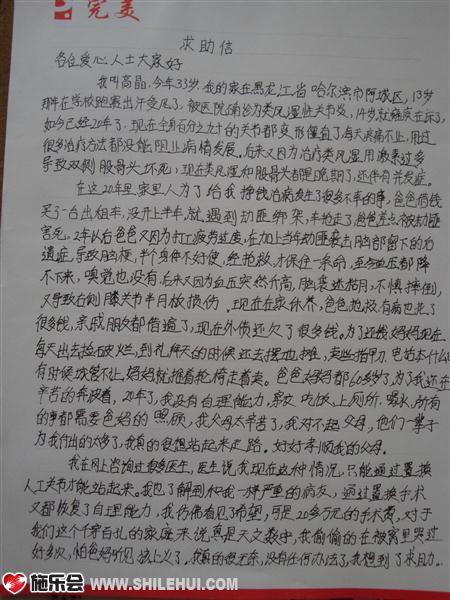 完美
求助信
各位爱心人士大家好
我叫高晶,今年33岁,我的家在黑龙江省哈尔滨市阿城区,13岁
那年在学校跑累出汗受凉了,被医院确诊为类风湿性关节炎,14岁就瘫痪在床了,
如今已经20年了,现在全身百分之九十的关节都变形僵直了每天疼痛不止,用过
很多治疗方法都没能阻止病情发展。后来又因为治疗类风湿用激素过多
导致双侧股骨头坏死,现在类风湿和股骨头都是晚期了,还伴有并发症。
在这20年里家里人为了给我挣钱治病发生了很多不幸的事,爸爸借钱
买了一台出租车,没开上半年,就遇到劫匪绑架,车抢走了,爸爸差点被劫匪
害死,2年以后爸爸又因为打工疲劳过度,在加上当年劫匪袭击脑部留下的后
遗症,导致脑梗,半个身体不好使,经抢救,才保住一条命,至今血压都降
不下来,嗅觉也没有,后来又因为血压突然升高,脑袋迷糊,不慎摔倒,
又导致右侧膝关节半月板损伤,现在在家休养,爸爸抢救看病也花了
很多钱,亲戚朋友都借遍了,现在外债还欠了很多钱。为了还钱妈妈现在
每天出去捡破烂,到礼拜天的时候还去摆地摊,卖些指甲刀,电话本什么
有时候城管不让,妈妈就推着轮椅走着卖。爸爸妈妈都60多岁了,为了我还在
辛苦的奔波着,20年了,我没有自理能力,穿衣,吃饭,上厕所,喝水,所有
的事都需要爸妈的照顾,我父母太辛苦了,我对不起父母,他们一辈子
为我付出的太多了,我真的很想站起来走路。好好孝顺我的父母。
我在网上咨询过很多医生,医生说我现在这种情况,只能通过置换
人工关节才能站起来。我也了解到和我一样严重的病友,通过置换手术
又都恢复了自理能力,我仿佛看见了希望,可是20多万元的手术费,对于
我们这个千穿百孔的家庭来说真是天文数字,我偷偷的在被窝里哭过
好多次,怕爸妈听见该上火了,我真的很无奈,没有任何办法了,我想到了求助。
施乐会 WWW.SHILEHUI.COM